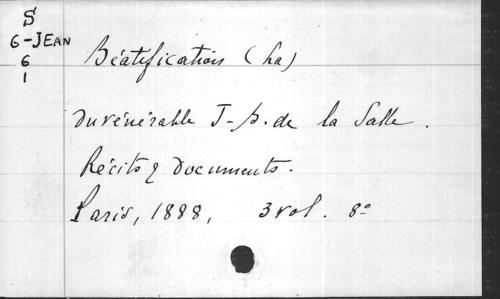 S
G-JEAN
6
1
Béatification (La)
du vénérable J-B. de la Salle.
Récits & Documents.
Paris, 1888, 3 vol. 8°